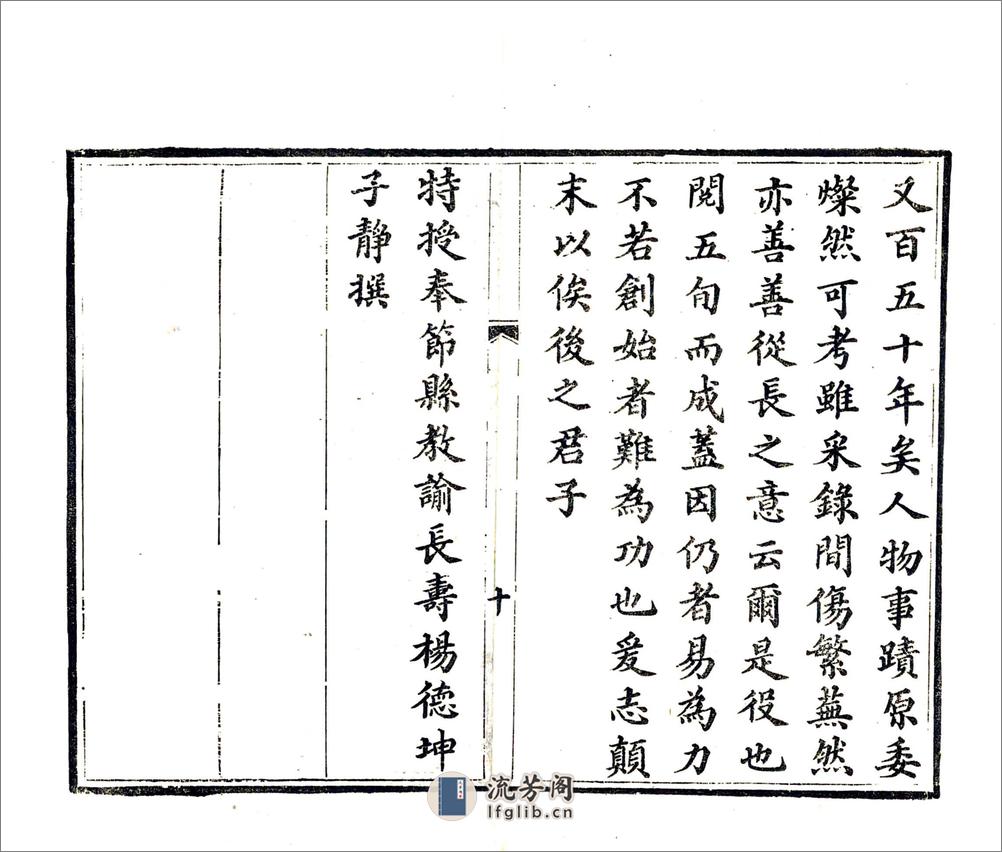 又百五十年矣人物事蹟原委
燦然可考雖采錄間傷繁蕪然
亦善善從長之意云爾是役也
閱五旬而成蓋因仍者易為力
不若創始者難為功也爰志顛
末以俟後之君子
十
特授奉節縣教諭長壽楊德坤
子靜撰
流芳阁
lfglib.cn